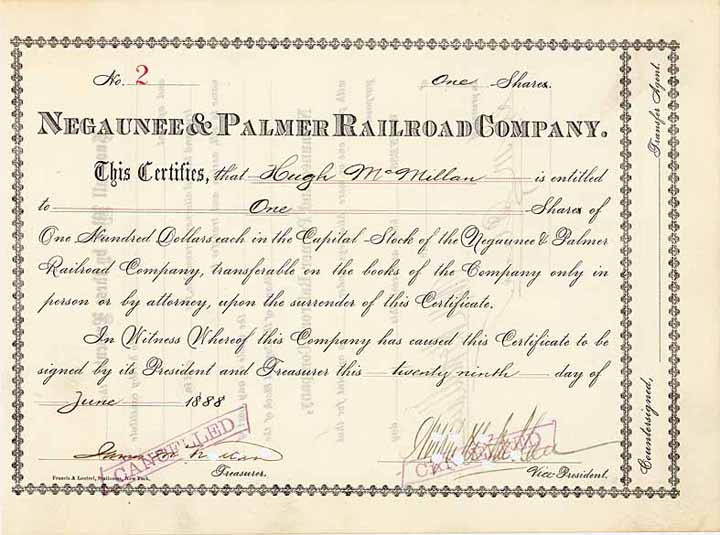 No. 2 One Shares.
NEGAUNEE & PALMER RAILROAD COMPANY.
This Certifies, that Hugh McMillan is entitled
to One Shares of
One Hundred Dollars each in the Capital Stock of the Negaunee & Palmer
Railroad Company, transferable on the books of the Company only in
person or by attorney, upon the surrender of this Certificate.
In Witness Whereof this Company has caused this Certificate to be
signed by its President and Treasurer this twenty ninth day of
June 1888
CANCELLED
CANCELLED
Treasurer.
Vice President.
Francis & Loutrel, Stationers, New York.
Countersigned,
Transfer Agent.